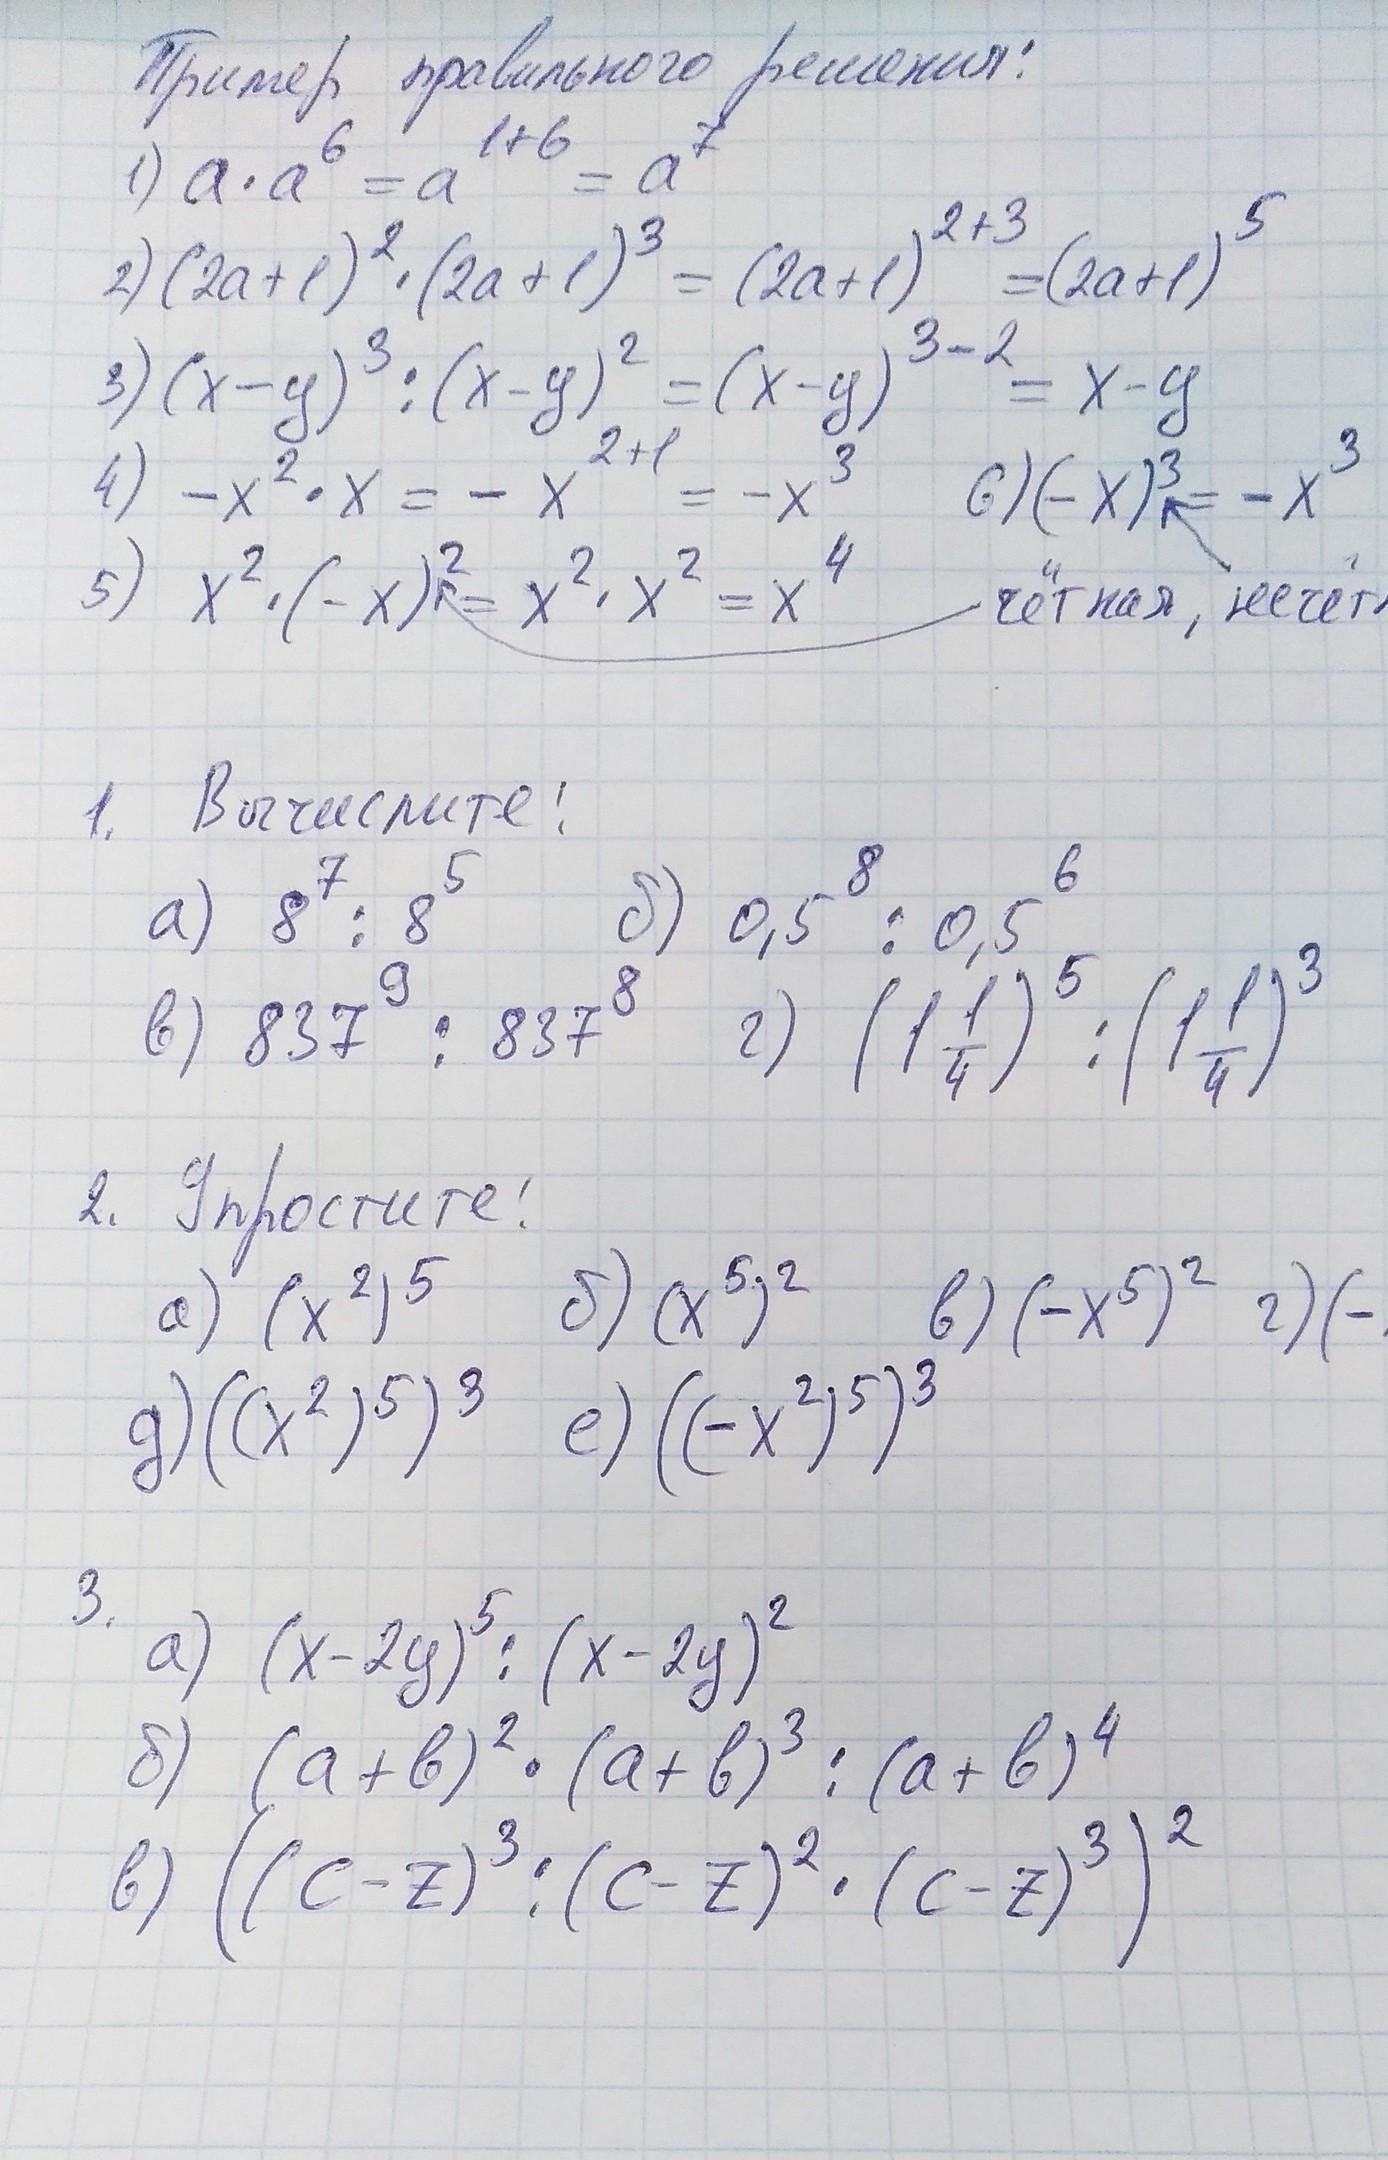 Пример правильного решения:
1) a·a⁶ = a¹⁺⁶ = a⁷
2) (2a+1)²·(2a+1)³ = (2a+1)²⁺³ = (2a+1)⁵
3) (x-y)³ : (x-y)² = (x-y)³⁻² = x-y
4) -x²·x = -x²⁺¹ = -x³ 6) (-x)³ = -x³
5) x²·(-x)² = x²·x² = x⁴ чётная, нечёт
1. Вычислите:
а) 8⁷ : 8⁵ б) 0,5⁸ : 0,5⁶
в) 837⁹ : 837⁸ г) (1 1/4)⁵ : (1 1/4)³
2. Упростите:
а) (x²)⁵ б) (x⁵)² в) (-x⁵)² г) (-
д) ((x²)⁵)³ е) ((-x²)⁵)³
3.
а) (x-2y)⁵ : (x-2y)²
б) (a+b)²·(a+b)³ : (a+b)⁴
в) ((c-z)³ : (c-z)²·(c-z)³)²